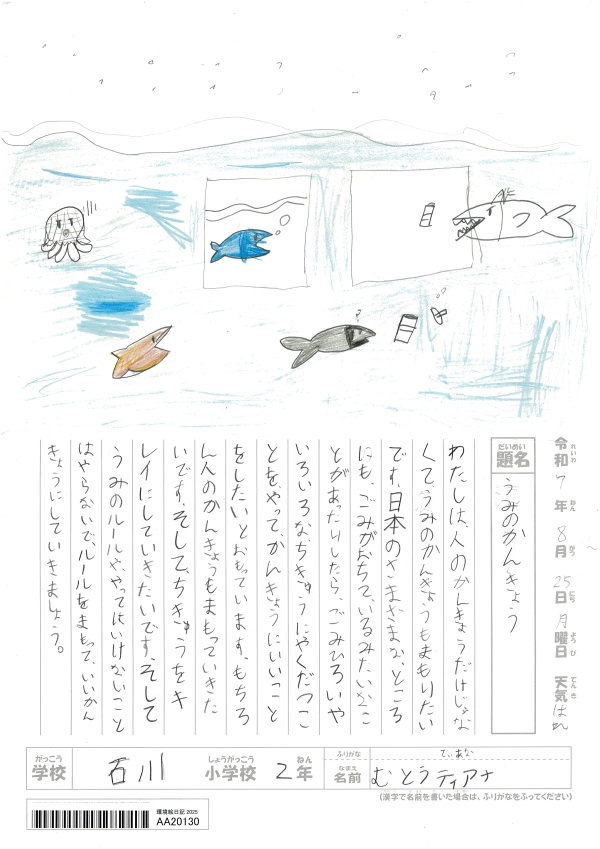 令和 7年 8月 25日 月曜日 天気 はれ
れいわ ねん がつ にち ようび てんき
だいめい
題名
うみのかんきょう
わたしは、人のかんきょうだけじゃな
くてうみのかんきょうもまもりたい
です。日本のさまざまな、ところ
にも、ごみがおちて、いるみたいなこ
とがあったりしたら、ごみひろいや
いろいろなちきゅうにやくだつこ
とを、やって、かんきょうにいいこと
をしたいとおもっています。もちろ
ん人のかんきょうもまもっていきた
いです。そして、ちきゅうをキ
レイにしていきたいです。そして
うみのルールや、やってはいけないこと
はやらないで、ルールをまもって、いいかん
きょうにしていきましょう。
がっこう しょうがっこう ねん ふりがな てぃあな
学校 石川 小学校 2年 なまえ 名前 むとうティアナ
(漢字で名前を書いた場合は、ふりがなをふってください)
環境絵日記 2025
AA20130